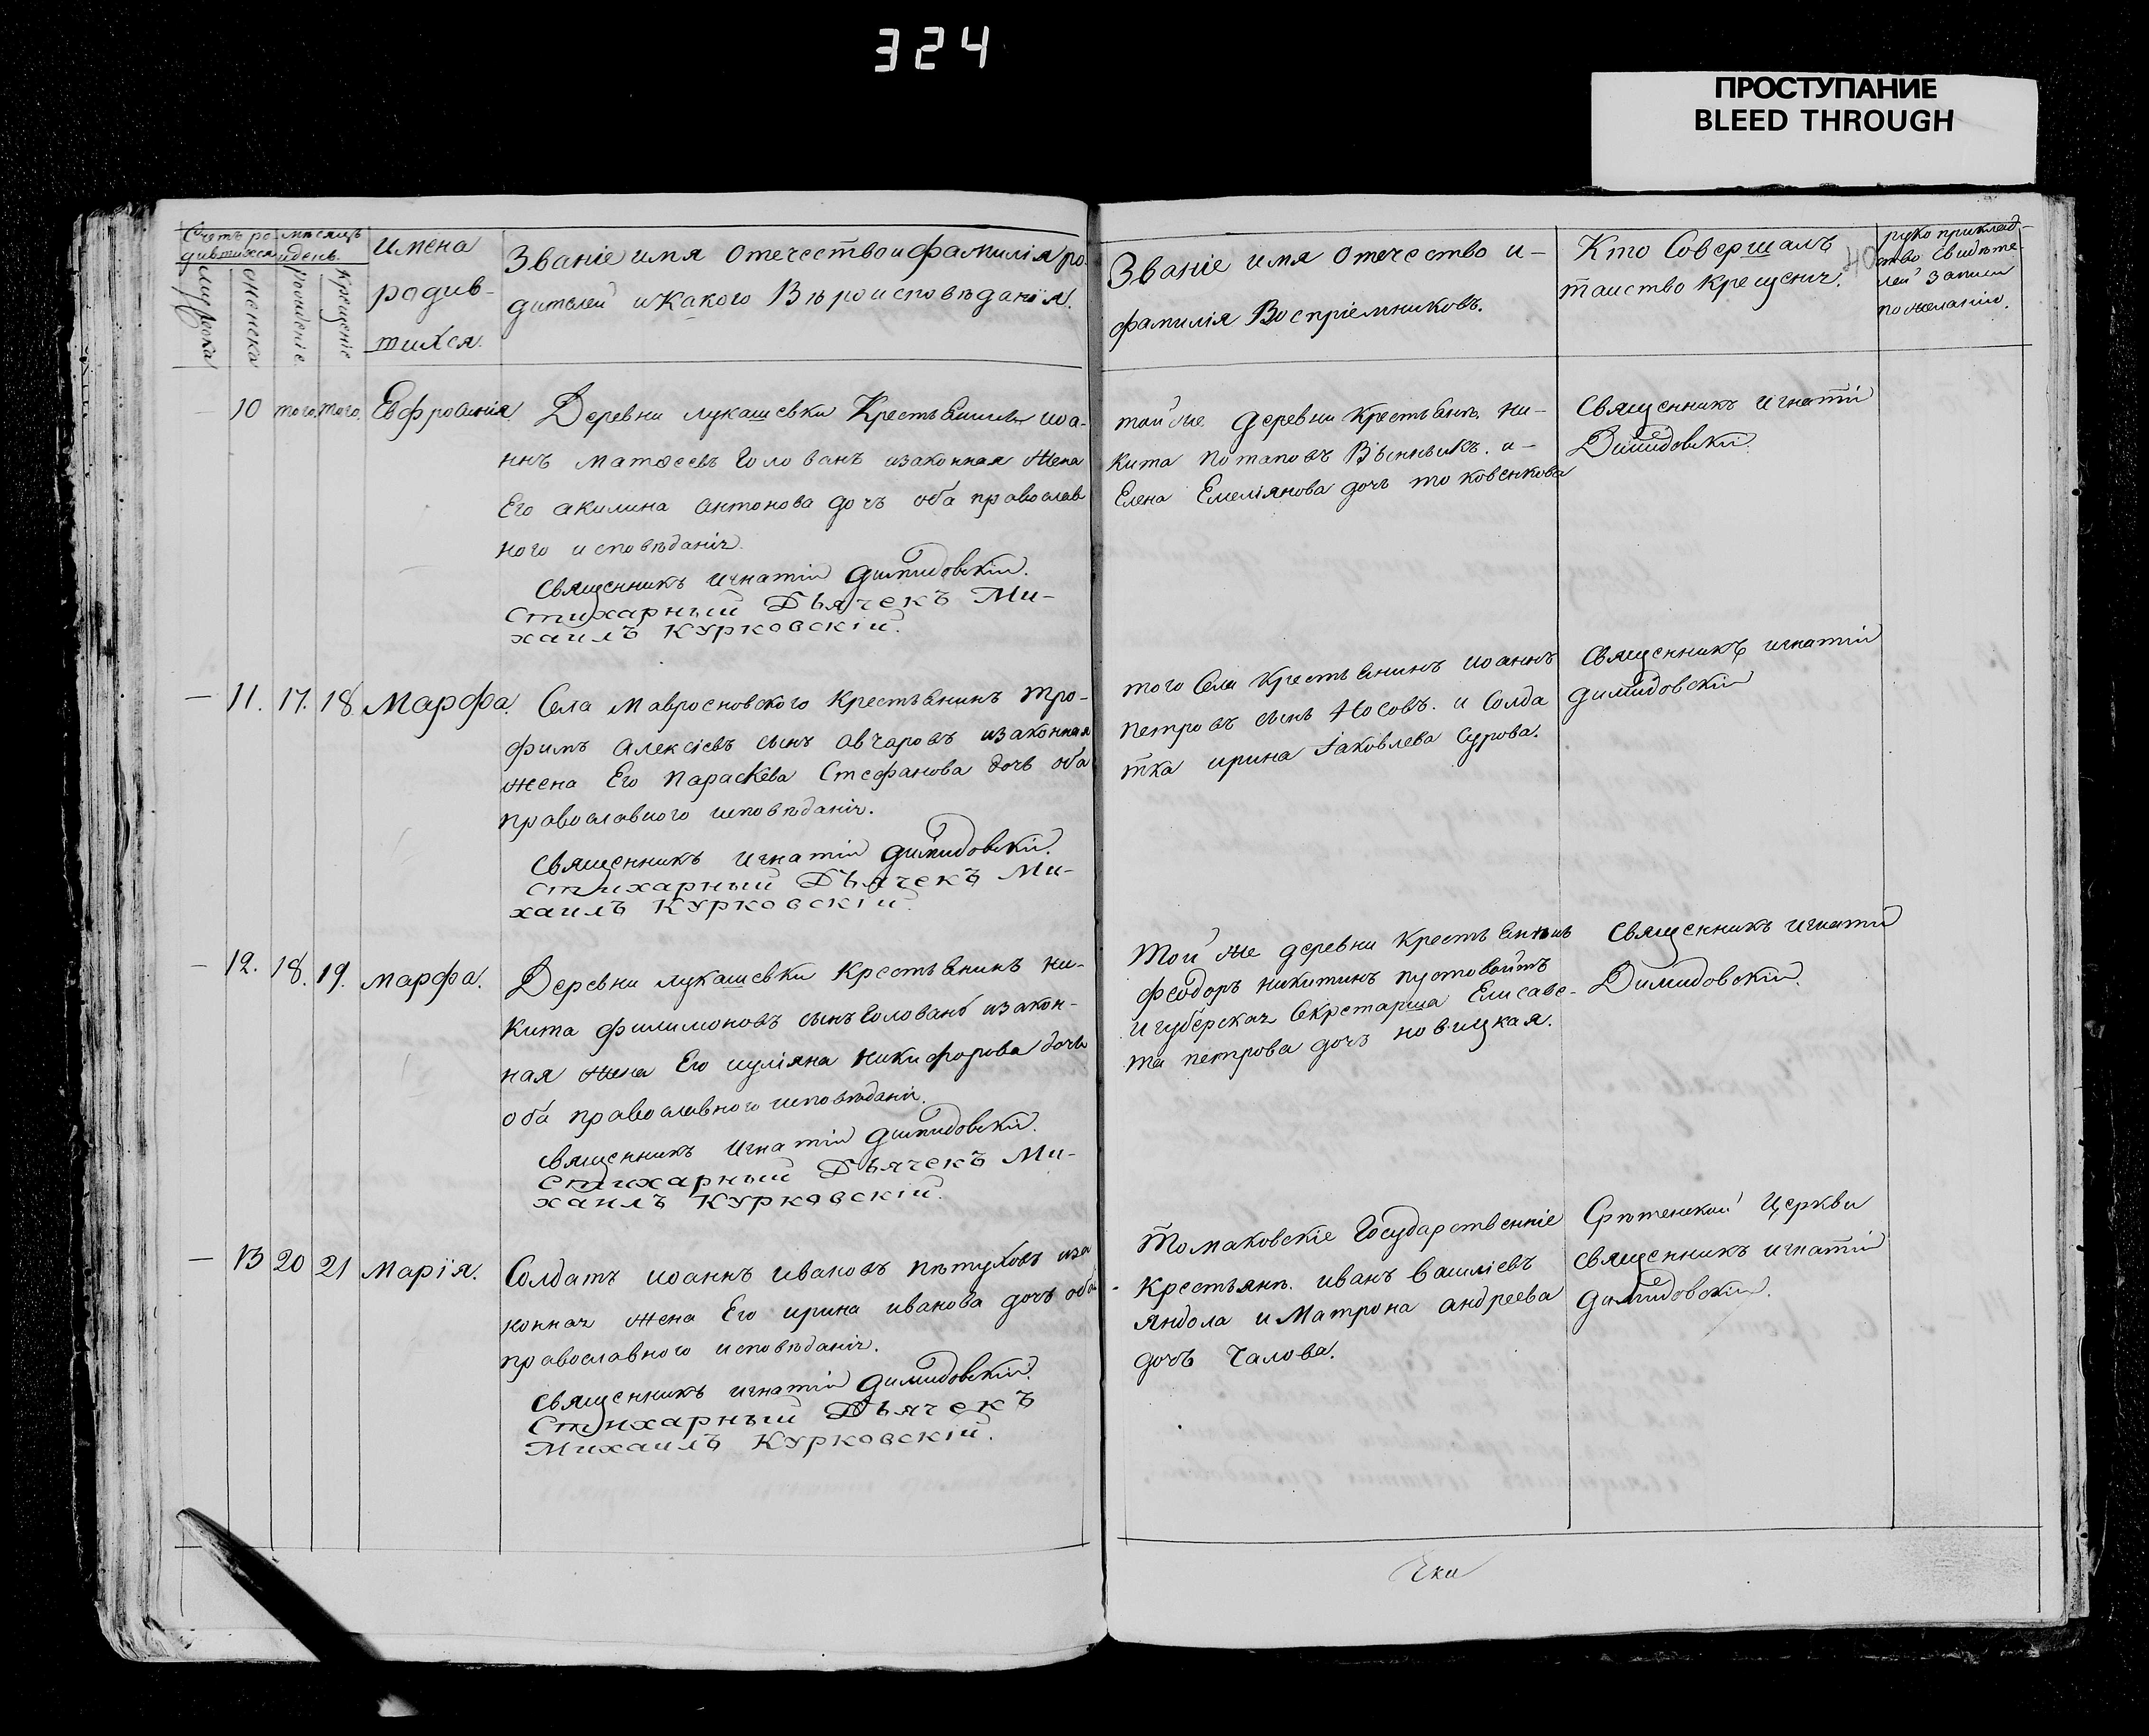 324
ПРОСТУПАНИЕ
BLEED THROUGH
Счетъ ро
дившихся
мѣсяцъ
и день.
Мужеска
Женска
Рожденіе.
Крещеніе
Имена
родив-
шихся.
Званіе имя Отечество и фамилія ро-
дителей и какого Вѣроисповѣданія.
Званіе имя Отечество и-
фамилія Воспріемниковъ.
Кто Совершалъ
таинство Крещенія.
руко приклад-
ство свидѣте-
лей записи
по желанію.
10 того того. Евфросинія. Деревни лукашевки Крестьянинъ иоа-
ннъ матѳеевъ Голованъ изаконная Жена
Его акилина антонова дочъ оба православ
ного исповѣданія.
Священникъ игнатій Димидовскій.
Стихарный Дьячекъ Ми-
хаилъ Курковскій.
той же деревни Крестьянъ. ни-
кита потаповъ и-
Елена Емеліянова дочь
Священникъ игнатій
Димидовскій
11. 17. 18. Марфа. Села Крестьянинъ тро-
фимъ алексіевъ сынъ овчаровъ изаконная
жена Его параскева Стефанова дочь оба
православного исповѣданія.
Священникъ игнатій димидовскій.
Стихарный Дьячекъ Ми-
хаилъ Курковскій.
того Села Крестьянинъ иоаннъ
петровъ сынъ Носовъ. и Солда
тка ирина Іаковлева Сурова.
Священникъ игнатій
димидовскій
12. 18. 19. Марфа. Деревни лукашевки Крестьянинъ ни-
кита филимоновъ сынъ Голованъ изакон-
ная жена Его иуліяна никифорова дочь
оба православного исповѣданія.
Священникъ Игнатій димидовскій.
Стихарный Дьячекъ Ми-
хаилъ Курковскій.
Той же деревни Крестьянинъ
феодоръ никитинъ пустовойтъ
и Секретарша Елисаве-
та петрова дочъ новицкая.
Священникъ игнатій
Димидовскій.
13 20 21 Марія. Солдатъ иоаннъ ивановъ пѣтуховъ иза
конная жена Его ирина иванова дочь оба
православного исповѣданія.
Священникъ игнатій димидовскій.
Стихарный Дьячекъ
Михаилъ Курковскій.
Томаковскіе Государственніе
Крестьянъ. иванъ василіевъ
Яндола и Матрона андреева
дочъ Чалова.
Срѣтенской Церкви
Священникъ игнатій
димидовскій.